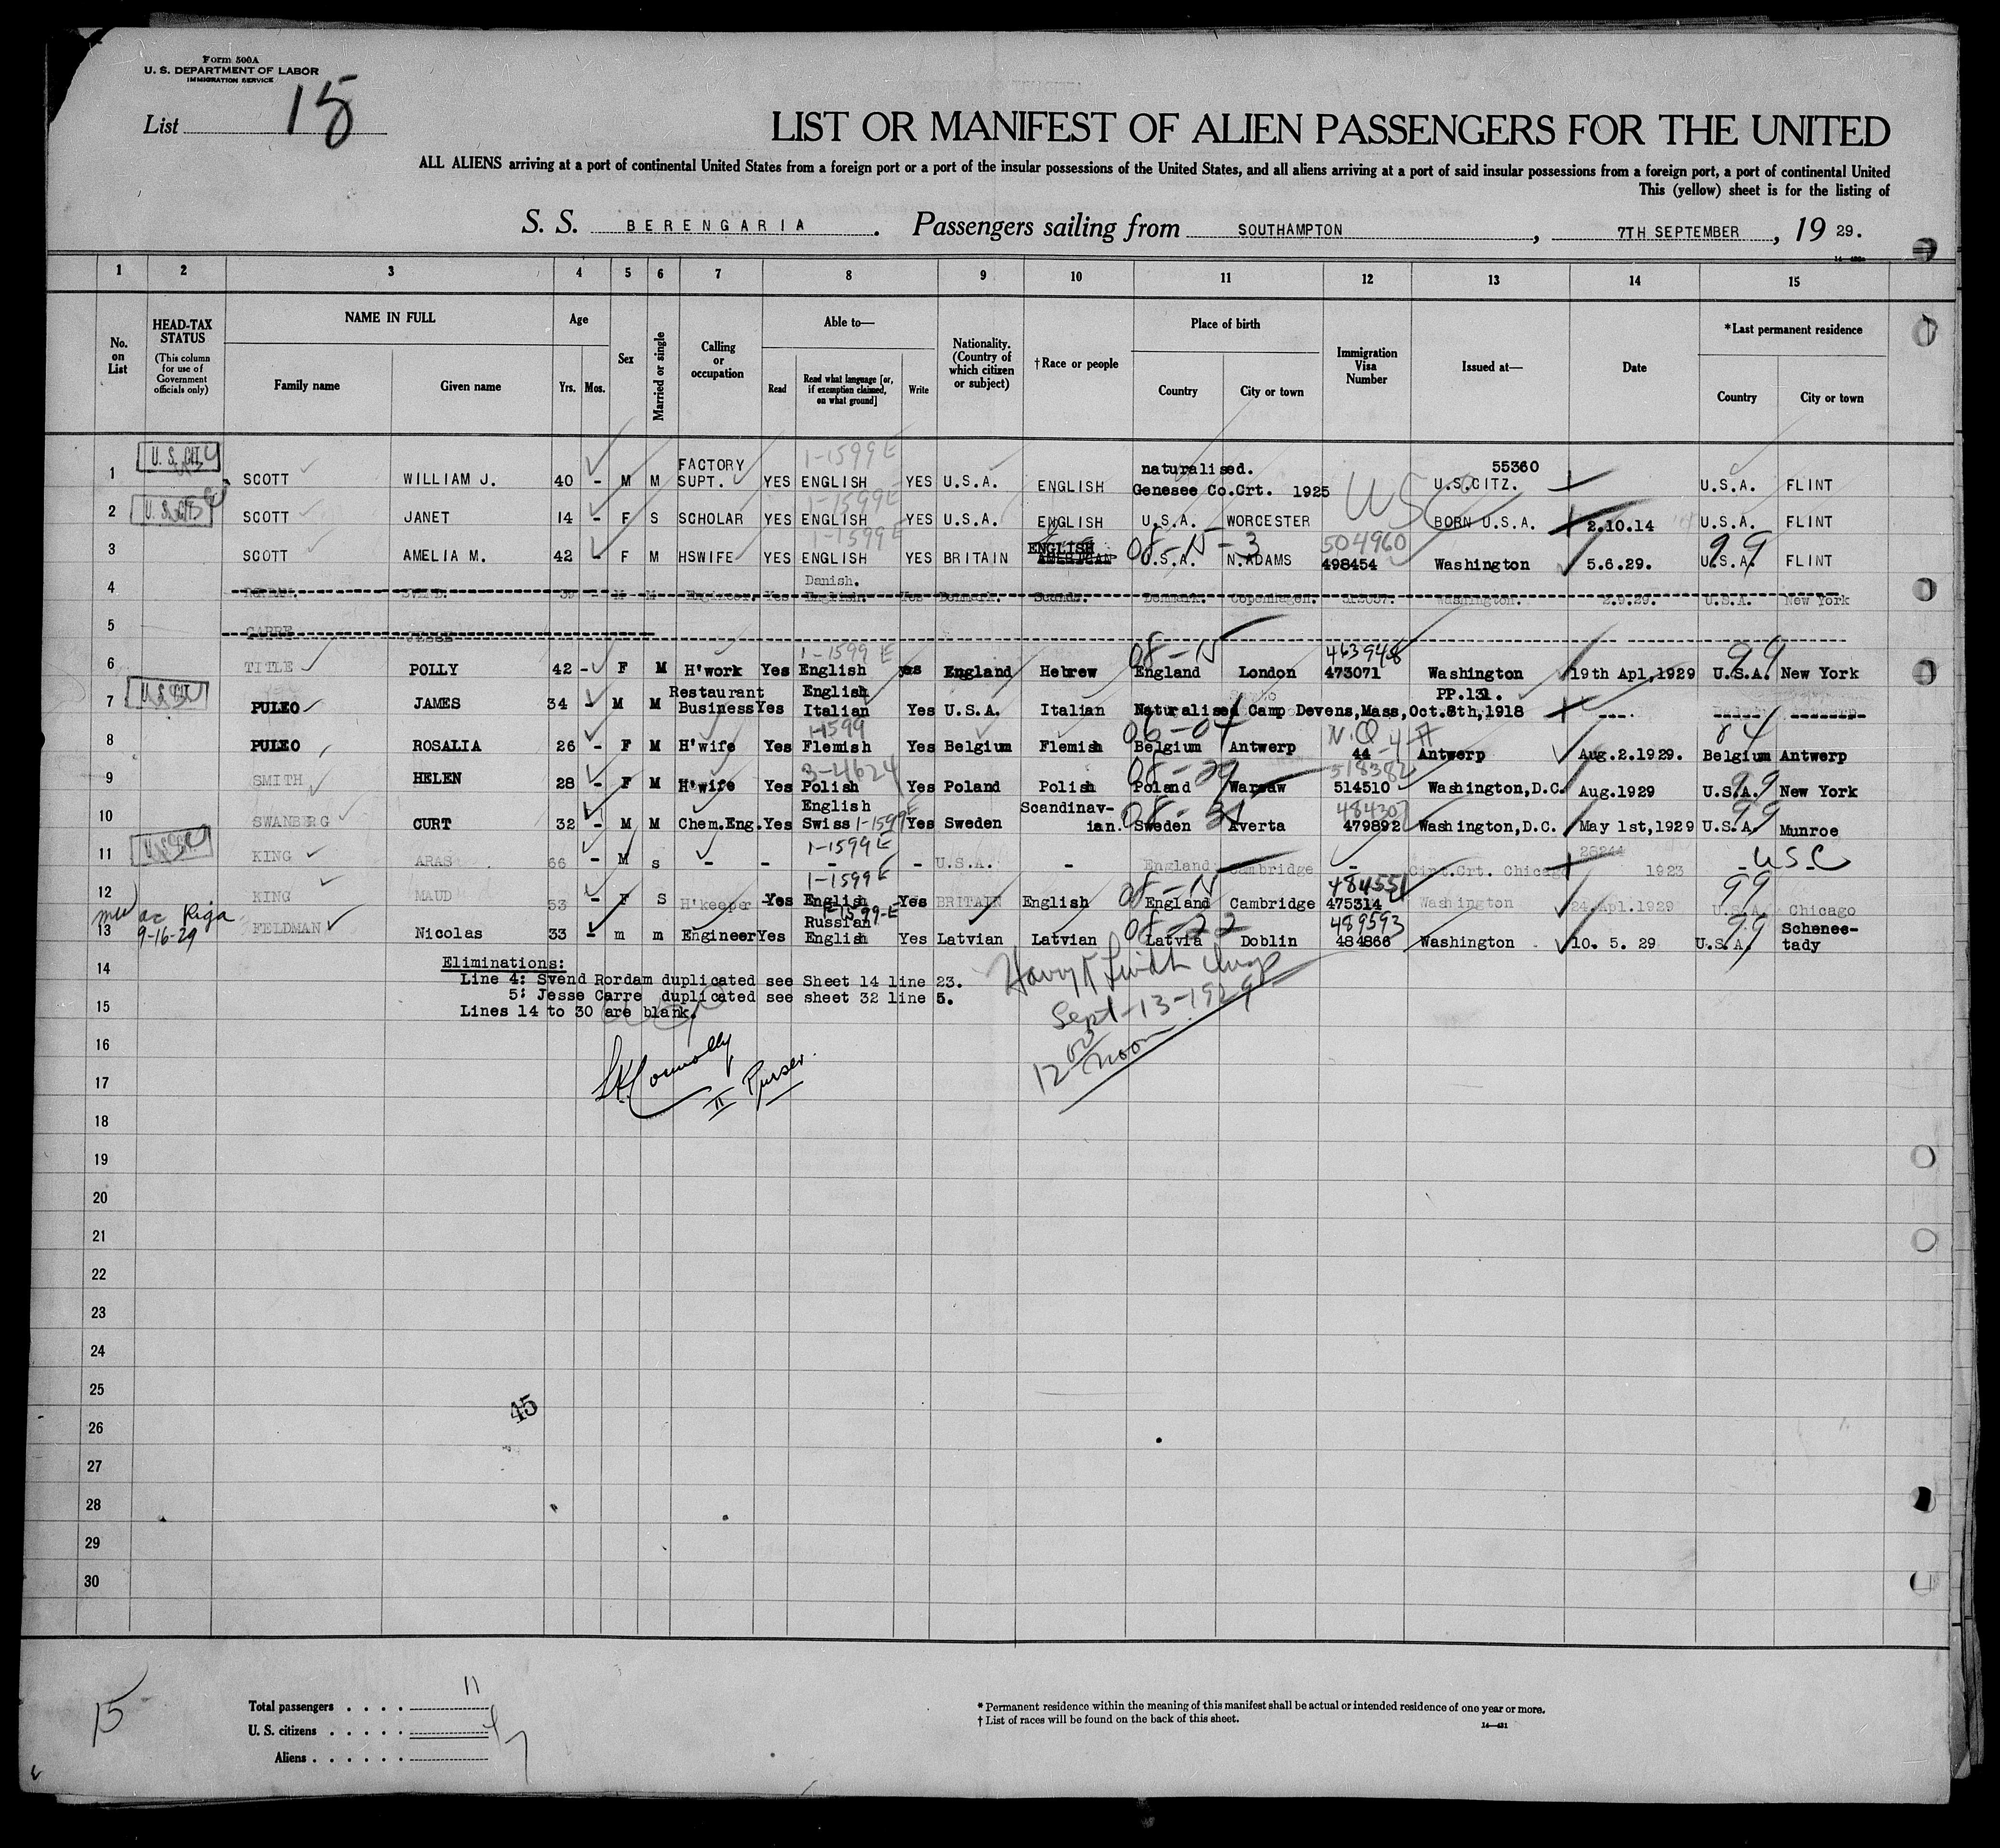 Form 500A
U. S. DEPARTMENT OF LABOR
IMMIGRATION SERVICE
List 15
LIST OR MANIFEST OF ALIEN PASSENGERS FOR THE UNITED
ALL ALIENS arriving at a port of continental United States from a foreign port or a port of the insular possessions of the United States, and all aliens arriving at a port of said insular possessions from a foreign port, a port of continental United
This (yellow) sheet is for the listing of
S. S. BERENGARIA. Passengers sailing from SOUTHAMPTON, 7TH SEPTEMBER, 19 29.
1 2 3 4 5 6 7 8 9 10 11 12 13 14 15
No. on List
HEAD-TAX STATUS
(This column for use of Government officials only)
NAME IN FULL
Family name Given name
Age
Yrs. Mos.
Sex
Married or single
Calling or occupation
Able to—
Read Read what language [or, if exemption claimed, on what ground] Write
Nationality. (Country of which citizen or subject)
†Race or people
Place of birth
Country City or town
Immigration Visa Number
Issued at—
Date
*Last permanent residence
Country City or town
1-1599E
1 U.S. CIT. SCOTT WILLIAM J. 40 - M M FACTORY SUPT. YES ENGLISH YES U.S.A. ENGLISH naturalised. Genesee Co.Crt. 1925 55360 U.S.CITZ. U.S.A. FLINT
1-1599E
USC
2 U.S. CIT. SCOTT JANET 14 - F S SCHOLAR YES ENGLISH YES U.S.A. ENGLISH U.S.A. WORCESTER BORN U.S.A. 2.10.14 U.S.A. FLINT
1-1599E 08-N-3 504960 99
3 SCOTT AMELIA M. 42 - F M HSWIFE YES ENGLISH YES BRITAIN ENGLISH AMERICAN U.S.A. N.ADAMS 498454 Washington 5.6.29. U.S.A. FLINT
Danish.
4 RORDAM. SVEND. 39 - M M Engineer. Yes English. Yes Denmark. Scand. Denmark. Copenhagen. Washington. 2.9.29. U.S.A. New York
5 CARRE JESSE
1-1599 E 08-N 463948 99
6 TITLE POLLY 42 - F M H'work Yes English Yes England Hebrew England London 473071 Washington 19th Apl,1929 U.S.A. New York
7 U.S. CIT. PULEO JAMES 34 - M M Restaurant Business Yes English Italian Yes U.S.A. Italian Naturalised Camp Devens,Mass,Oct.8th,1918 PP.131.
1-1599 N.Q
8 PULEO ROSALIA 26 - F M H'wife Yes Flemish Yes Belgium Flemish Belgium Antwerp 44 Antwerp Aug.2.1929. Belgium Antwerp
3-4624 08-29 518382 99
9 SMITH HELEN 28 - F M H'wife Yes Polish Yes Poland Polish Poland Warsaw 514510 Washington,D.C. Aug.1929 U.S.A. New York
08-31 484307 99
10 SWANBERG CURT 32 - M M Chem.Eng. Yes English Swiss 1-1599E Yes Sweden Scandinav-ian. Sweden Averta 479892 Washington,D.C. May 1st,1929 U.S.A. Munroe
1-1599E
11 U.S. CIT. KING ARAS 66 - M S - - - - U.S.A. - England Cambridge - Cirt.Crt. Chicago 28244 1923 - USC
1-1599E 08-N 484551 99
12 KING MAUD 53 - F S H'keeper Yes English Yes BRITAIN English England Cambridge 475314 Washington 24 Apl.1929 U.S.A. Chicago
ac Riga 9-16-29
1-1599-E 08-22 489593 99
13 FELDMAN Nicolas 33 - m m Engineer Yes Russian English Yes Latvian Latvian Latvia Doblin 484866 Washington 10. 5. 29 U.S.A. Schenec-tady
14 Eliminations:
Line 4: Svend Rordam duplicated see Sheet 14 line 23.
5: Jesse Carre duplicated see sheet 32 line 5.
15 Lines 14 to 30 are blank.
Sept-13-1929
12 00 noon
16
Connolly
II Purser.
17
18
19
20
21
22
23
24
25
45
26
27
28
29
30
15
Total passengers . . . . 11
U. S. citizens . . . . . 4
Aliens . . . . . . 7
* Permanent residence within the meaning of this manifest shall be actual or intended residence of one year or more.
† List of races will be found on the back of this sheet.
14—431